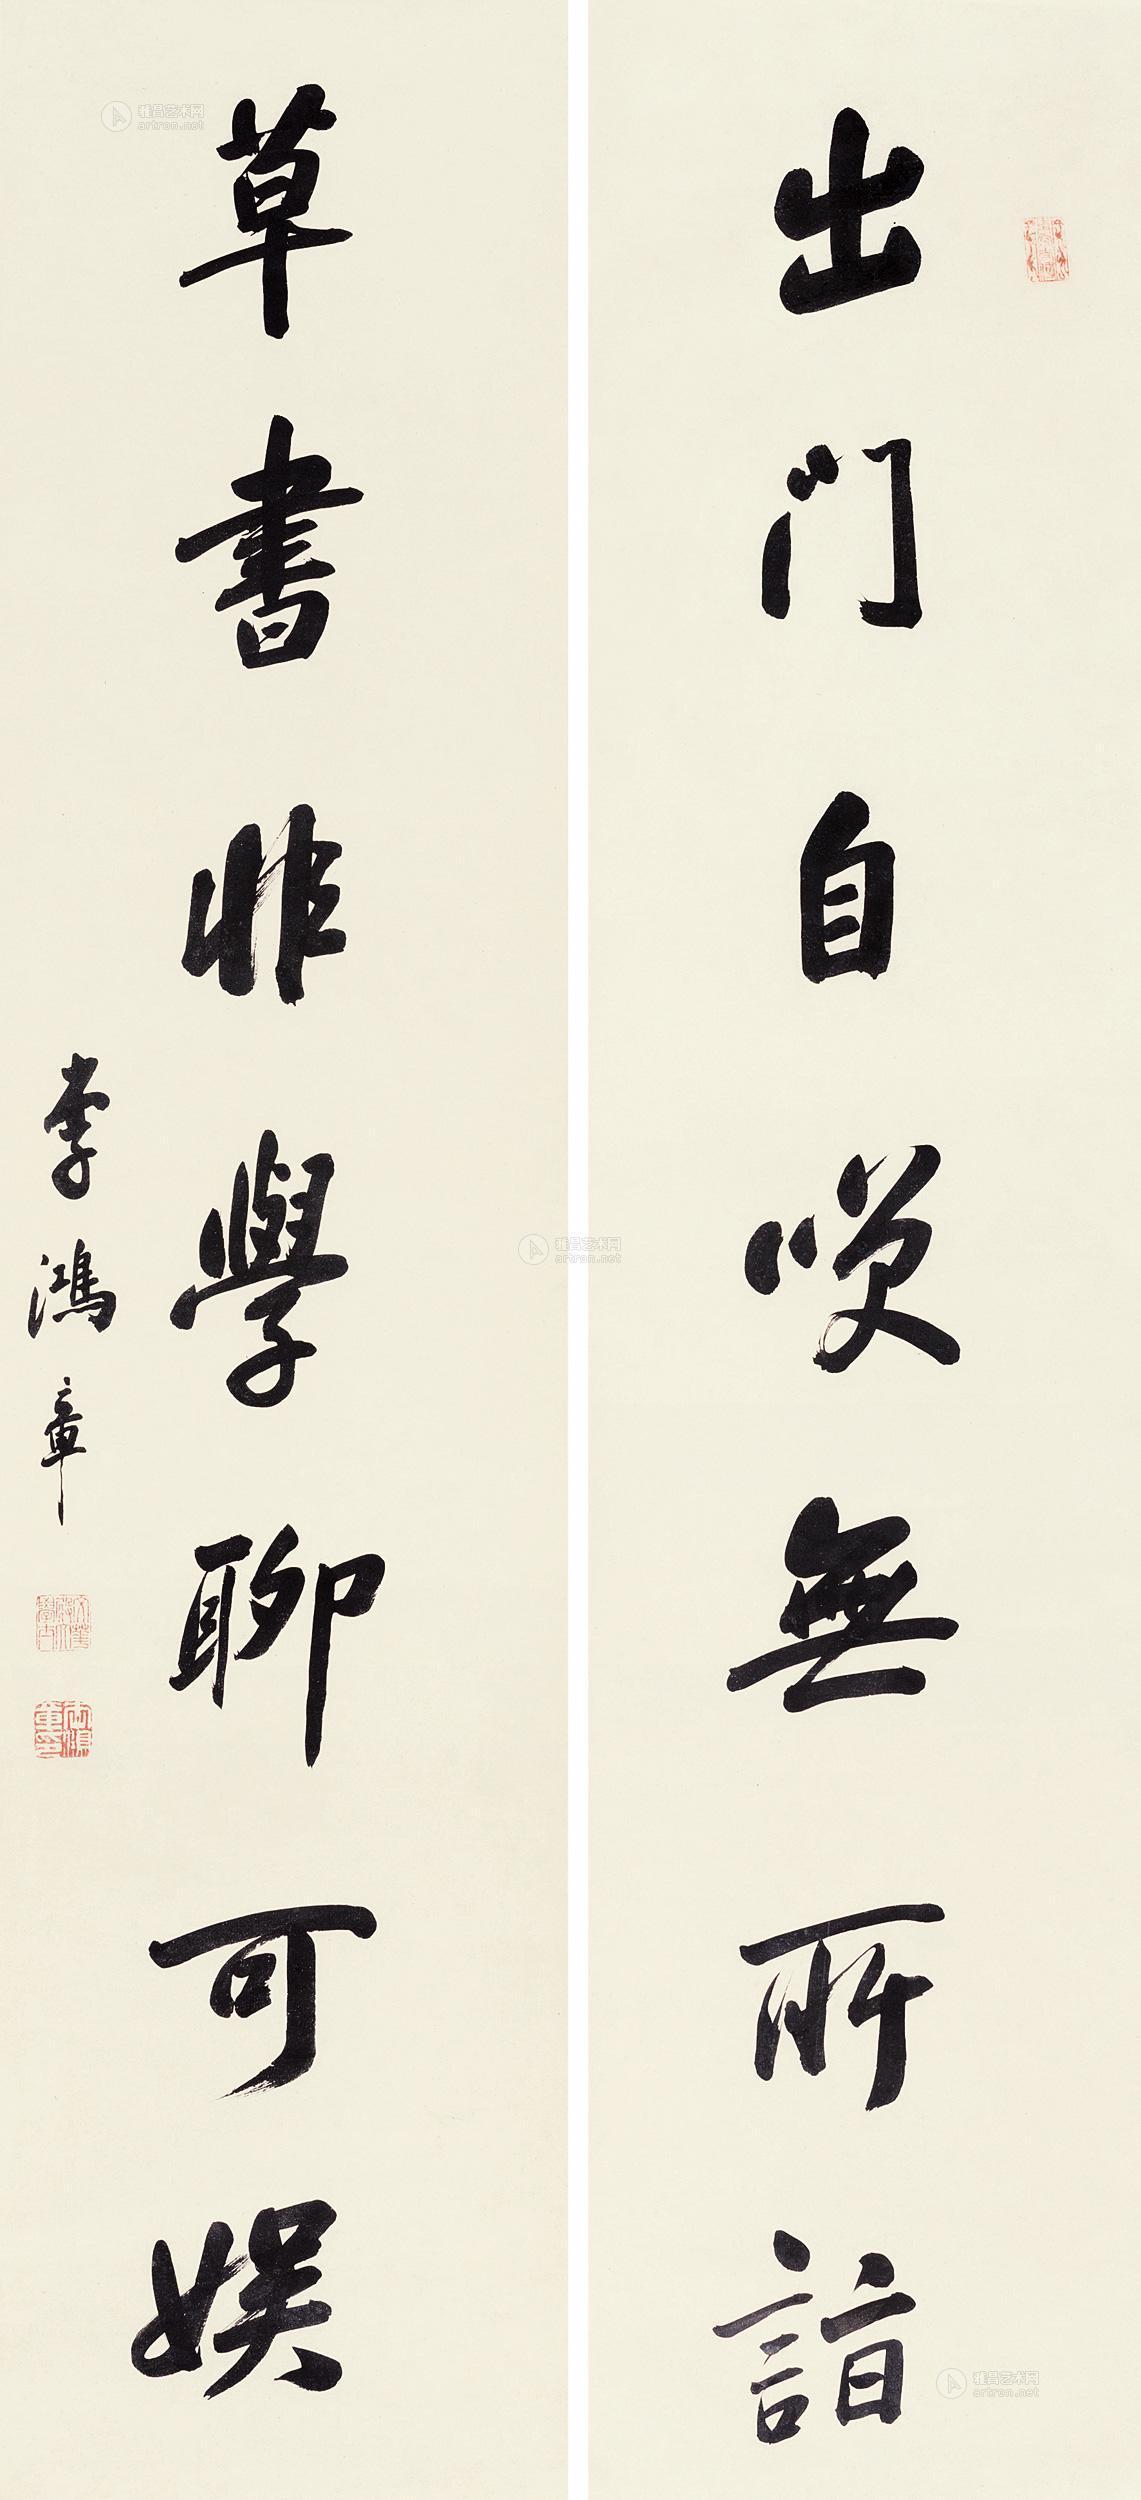 出門自笑無所詣
草書非學聊可娛
李鴻章
雅昌艺术网
artron.net
雅昌艺术网
artron.net
雅昌艺术网
artron.net